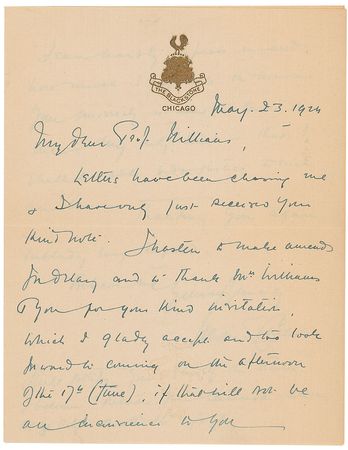 THE BLACKSTONE
CHICAGO
May. 23. 1924
My dear Prof. Williams,
Letters have been chasing me
& I have only just received your
kind note. I hasten to make amends
for delay and to thank Mrs Williams
& you for your kind invitation,
which I gladly accept and too look
forward to coming on the afternoon
of the 17th (June), if that will not be
an inconvenience to you